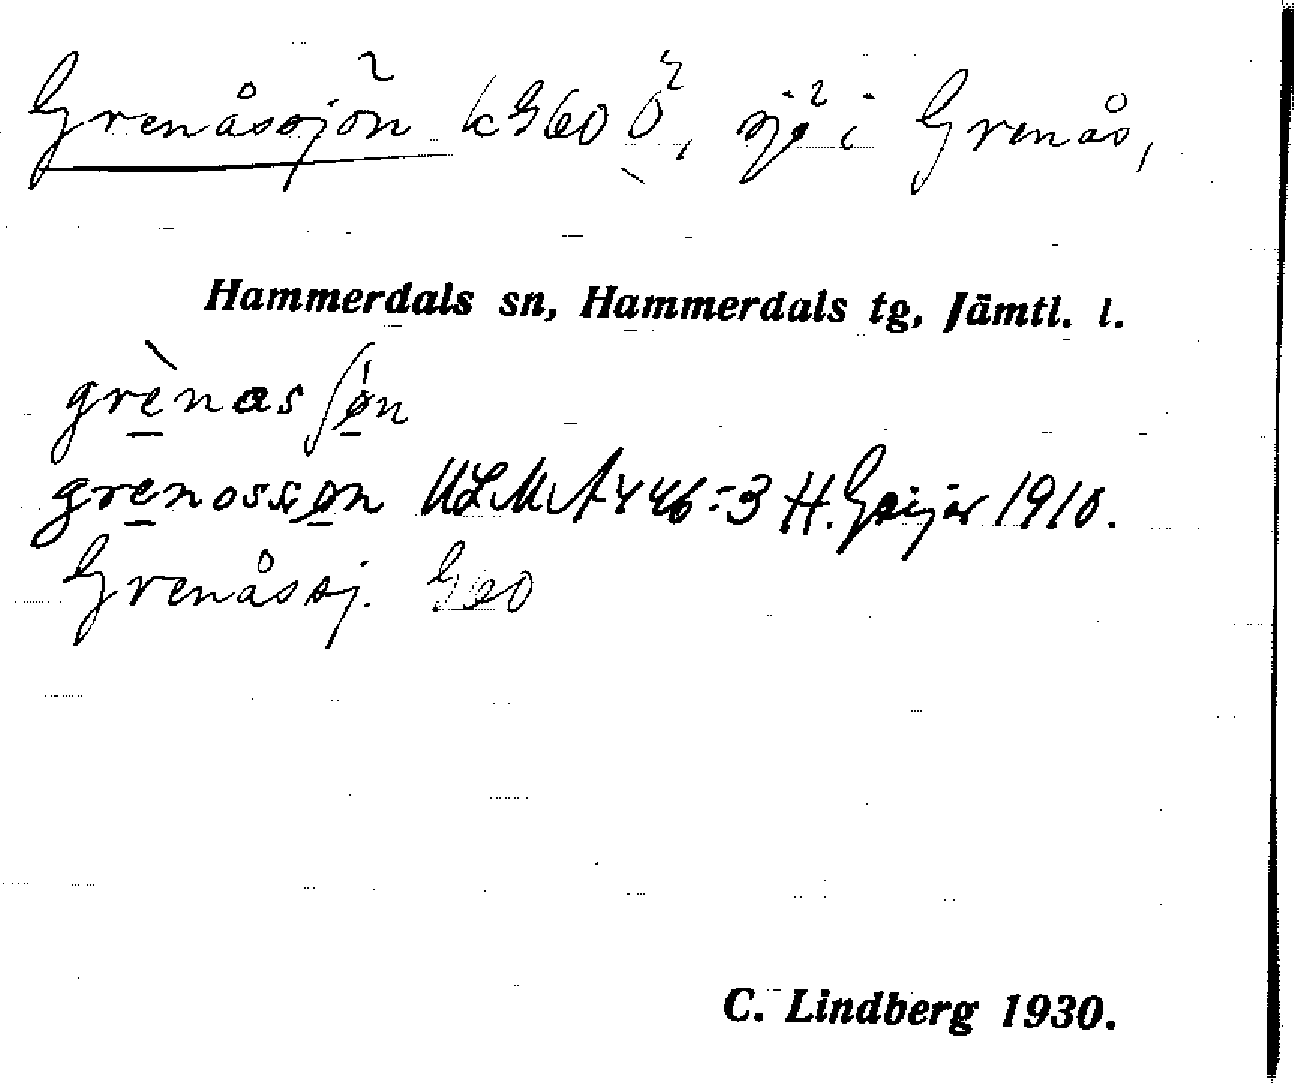 Grenåssjön k G60 Ö, sjö i Grenås,
Hammerdals sn, Hammerdals tg, Jämtl. l.
grènas ʃøn
grenossøn ULMA 446:3 H. Geijer 1910.
Grenåssj. G60
C. Lindberg 1930.